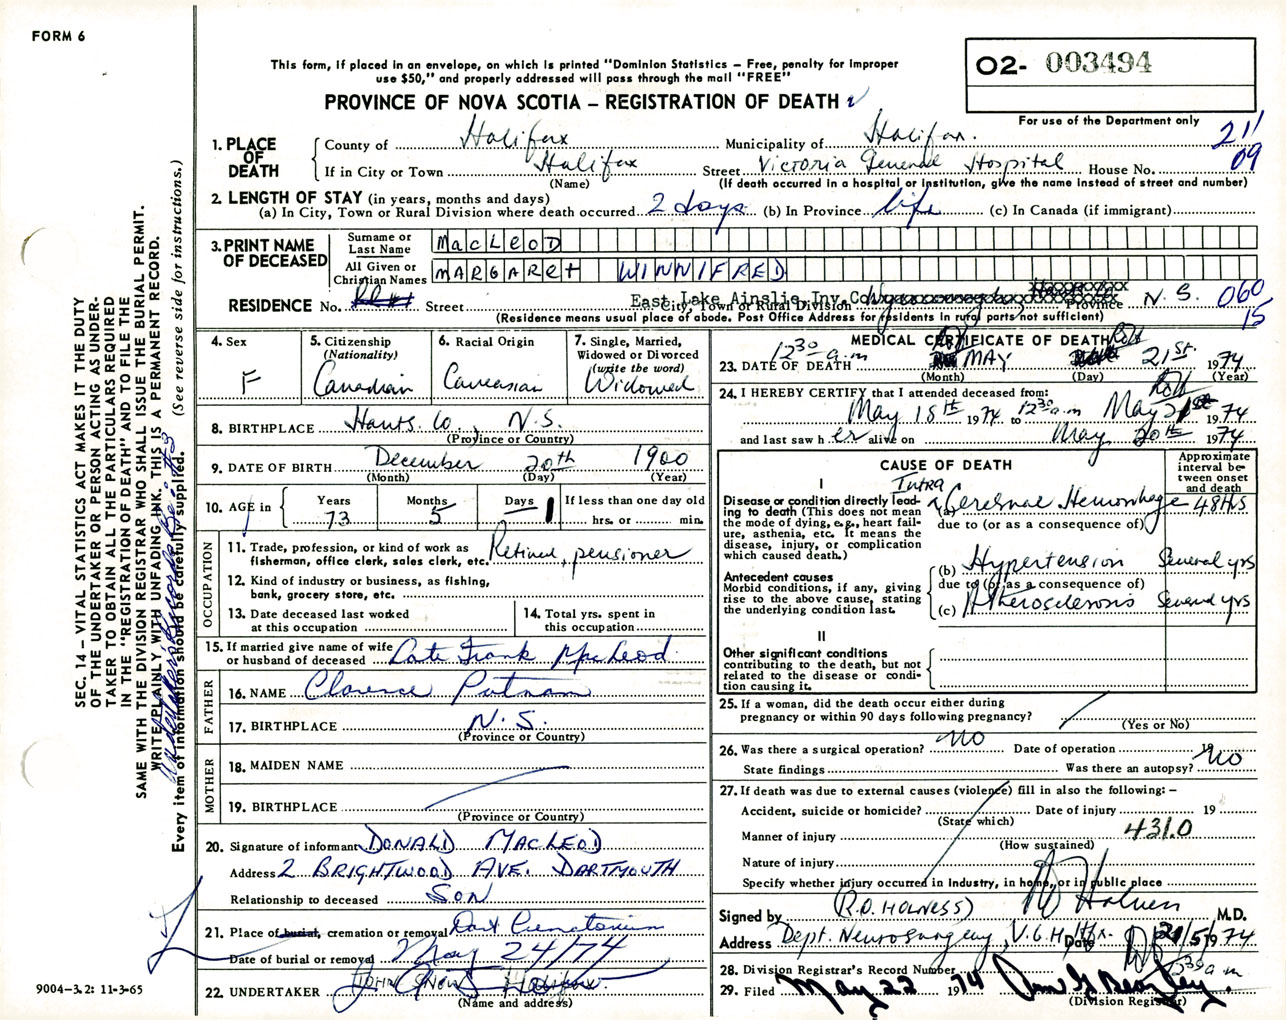 FORM 6
This form, if placed in an envelope, on which is printed "Dominion Statistics – Free, penalty for improper
use $50," and properly addressed will pass through the mail "FREE"
PROVINCE OF NOVA SCOTIA – REGISTRATION OF DEATH
O2- 003494
For use of the Department only
211
09
1. PLACE OF DEATH
County of Halifax Municipality of Halifax.
If in City or Town Halifax Street Victoria General Hospital House No.
(Name) (If death occurred in a hospital or institution, give the name instead of street and number)
2. LENGTH OF STAY (in years, months and days)
(a) In City, Town or Rural Division where death occurred 2 days (b) In Province life (c) In Canada (if immigrant)
3. PRINT NAME OF DECEASED
Surname or Last Name MacLEOD
All Given or Christian Names MARGARET WINNIFRED
RESIDENCE No. Street East Lake Ainslie, Inv. Co. N.S. 060
City, Town or Rural Division Province 15
(Residence means usual place of abode. Post Office Address for residents in rural parts not sufficient)
4. Sex
F
5. Citizenship
(Nationality)
Canadian
6. Racial Origin
Caucasian
7. Single, Married,
Widowed or Divorced
(write the word)
Widowed
8. BIRTHPLACE Hants Co., N.S.
(Province or Country)
9. DATE OF BIRTH December 20th 1900
(Month) (Day) (Year)
10. AGE in
Years 73
Months 5
Days 1
If less than one day old
hrs. or min.
OCCUPATION
11. Trade, profession, or kind of work as
fisherman, office clerk, sales clerk, etc. Retired, pensioner
12. Kind of industry or business, as fishing,
bank, grocery store, etc.
13. Date deceased last worked
at this occupation
14. Total yrs. spent in
this occupation
15. If married give name of wife
or husband of deceased Late Frank MacLeod
FATHER
16. NAME Clarence Putnam
17. BIRTHPLACE N.S.
(Province or Country)
MOTHER
18. MAIDEN NAME
19. BIRTHPLACE
(Province or Country)
20. Signature of informant DONALD MACLEOD
Address 2 BRIGHTWOOD AVE. DARTMOUTH
Relationship to deceased SON
21. Place of burial, cremation or removal Dart Crematorium
Date of burial or removal May 24/74
22. UNDERTAKER JOHN SNOW Halifax
(Name and address)
MEDICAL CERTIFICATE OF DEATH
23. DATE OF DEATH 12:30 a.m MAY 21st 1974
(Month) (Day) (Year)
24. I HEREBY CERTIFY that I attended deceased from:
May 18th 1974 to 12:30 a.m May 21st 1974
and last saw her alive on May 20th 1974
CAUSE OF DEATH
Approximate
interval be-
tween onset
and death
I
Disease or condition directly lead-
ing to death (This does not mean
the mode of dying, e.g., heart fail-
ure, asthenia, etc. It means the
disease, injury, or complication
which caused death.)
Intra
(a) Cerebral Hemorrhage 48 Hrs
due to (or as a consequence of)
Antecedent causes
Morbid conditions, if any, giving
rise to the above cause, stating
the underlying condition last.
(b) Hypertension Several yrs
due to (or as a consequence of)
(c) Atherosclerosis Several yrs
II
Other significant conditions
contributing to the death, but not
related to the disease or condi-
tion causing it.
25. If a woman, did the death occur either during
pregnancy or within 90 days following pregnancy?
(Yes or No)
26. Was there a surgical operation? No Date of operation 19
State findings Was there an autopsy? No
27. If death was due to external causes (violence) fill in also the following: –
Accident, suicide or homicide? Date of injury 19
(State which)
Manner of injury 431.0
(How sustained)
Nature of injury
Specify whether injury occurred in industry, in home, or in public place
Signed by (R.O. HOLNESS) RO Holness M.D.
Address Dept. Neurosurgery, V.G.H. Hfx. Date 21/5/1974
12:30 a m
28. Division Registrar's Record Number
29. Filed May 22 1974
(Division Registrar)
SEC. 14 – VITAL STATISTICS ACT MAKES IT THE DUTY
OF THE UNDERTAKER OR PERSON ACTING AS UNDER-
TAKER TO OBTAIN ALL THE PARTICULARS REQUIRED
IN THE "REGISTRATION OF DEATH" AND TO FILE THE
SAME WITH THE DIVISION REGISTRAR WHO SHALL ISSUE THE BURIAL PERMIT.
WRITE PLAINLY WITH UNFADING INK. THIS IS A PERMANENT RECORD.
Every item of information should be carefully supplied. (See reverse side for instructions.)
9004-3.2: 11-3-65